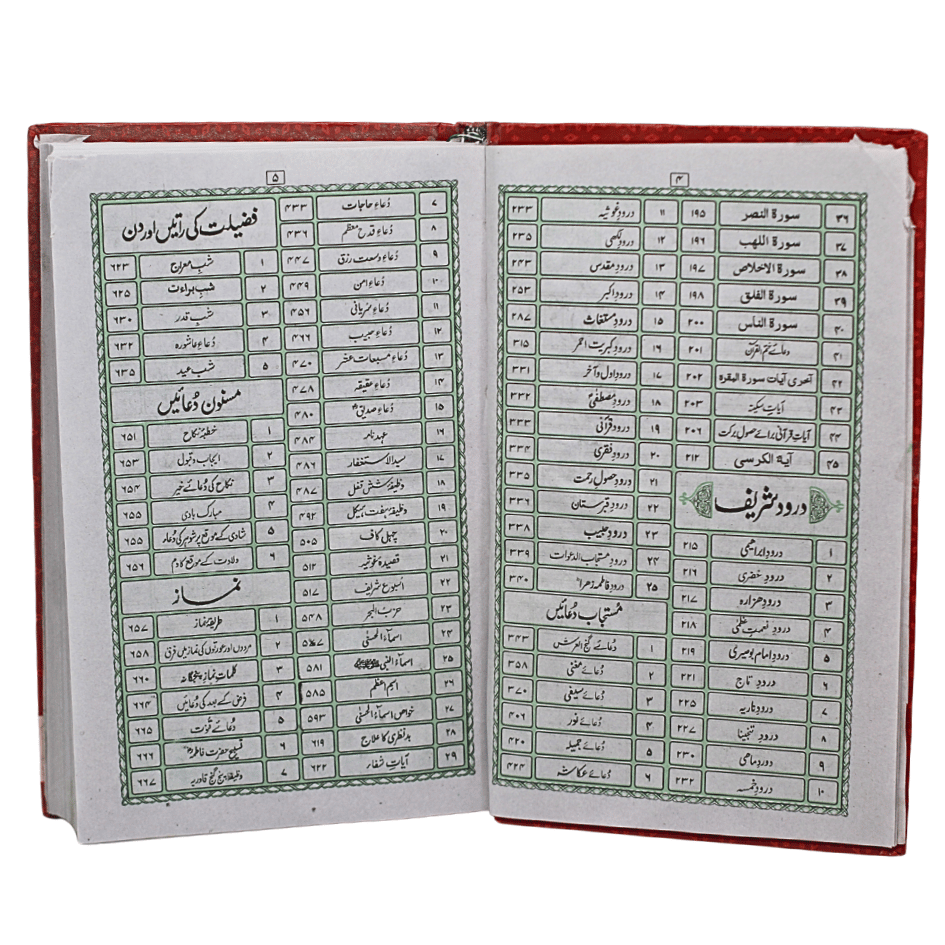 ۴
۳۶ سورة النصر ۱۹۵
۳۷ سورة اللهب ۱۹۶
۳۸ سورة الاخلاص ۱۹۷
۳۹ سورة الفلق ۱۹۸
۴۰ سورة الناس ۲۰۰
۴۱ دعائے ختم القرآن ۲۰۱
۴۲ آخری آیات سورة البقره ۲۰۲
۴۳ آیاتِ سکینہ ۲۰۳
۴۴ آیاتِ قرآنی برائے حصول برکت ۲۰۶
۴۵ آیة الکرسی ۲۱۲
درود شریف
۱ درودِ ابراہیمی ۲۱۵
۲ درودِ خضری ۲۱۶
۳ درودِ هزاره ۲۱۷
۴ درودِ نعمتِ عظمیٰ ۲۱۸
۵ درودِ امام بوصیری ۲۱۹
۶ درودِ تاج ۲۲۱
۷ درودِ ناریہ ۲۲۵
۸ درودِ تنجینا ۲۲۷
۹ درودِ ماہی ۲۳۰
۱۰ درودِ خمسہ ۲۳۲
۱۱ درودِ غوثیہ ۲۳۳
۱۲ درودِ لکھی ۲۳۵
۱۳ درودِ مقدس ۲۴۳
۱۴ درودِ اکبر ۲۵۳
۱۵ درودِ مستغاث ۲۸۷
۱۶ درودِ کبریت احمر ۳۱۵
۱۷ درودِ اول و آخر ۳۳۱
۱۸ درودِ مصطفےٰ ۳۳۲
۱۹ درودِ قرآنی ۳۳۳
۲۰ درودِ فقری ۳۳۴
۲۱ درودِ حصول رحمت ۳۳۵
۲۲ درودِ قبرستان ۳۳۶
۲۳ درودِ حبیب ۳۳۸
۲۴ درودِ مستجاب الدعوات ۳۳۹
۲۵ درودِ فاطمہ زھرا ۳۴۰
مُستجاب دُعائیں
۱ دُعائے گنج العرش ۳۴۳
۲ دُعائے مغنی ۳۵۸
۳ دُعائے سیفی ۳۷۰
۴ دُعائے نور ۴۰۶
۵ دُعائے جمیلہ ۴۲۰
۶ دُعائے عکاشہ ۴۲۴
۵
۷ دُعاءِ حاجات ۴۳۳
۸ دُعاءِ قدح معظم ۴۳۶
۹ دُعاءِ وسعت رزق ۴۴۷
۱۰ دُعاءِ امن ۴۴۹
۱۱ دُعاءِ سُریانی ۴۵۶
۱۲ دُعاءِ حبیب ۴۶۶
۱۳ دُعاءِ مسبعات عشر ۴۷۰
۱۴ دُعاءِ عقیقہ ۴۷۸
۱۵ دُعاءِ صدیق ۴۸۰
۱۶ عہد نامہ ۴۸۴
۱۷ سید الاستغفار ۴۸۶
۱۸ وظیفۂ شش قفل ۴۸۷
۱۹ وظیفۂ ہفت ہیکل ۴۹۲
۲۰ چہل کاف ۵۰۵
۲۱ قصیدۂ غوثیہ ۵۱۲
۲۲ اسبوع شریف ۵۱۷
۲۳ حزب البحر ۵۴۸
۲۴ اسمآءُ الحسنٰی ۵۶۷
۲۵ اسماءُ النبی ﷺ ۵۸۱
۲۶ اسمِ اعظم ۵۸۵
۲۷ خواص اسمآءُ الحسنٰی ۵۹۳
۲۸ بدنظری کا علاج ۶۱۹
۲۹ آیاتِ شفاء ۶۲۲
فضیلت کی راتیں اور دن
۱ شبِ معراج ۶۲۳
۲ شبِ براءت ۶۲۵
۳ شبِ قدر ۶۳۰
۴ دُعاءِ عاشورہ ۶۳۲
۵ شبِ عید ۶۳۵
مسنون دُعائیں
۱ خطبۂ نکاح ۶۵۱
۲ ایجاب و قبول ۶۵۳
۳ نکاح کی دُعائے خیر ۶۵۴
۴ مبارک بادی ۶۵۵
۵ شادی کے موقع پر شوہر کی دُعاء ۶۵۵
۶ ولادت کے موقع کا دم ۶۵۶
نماز
۱ طریقۂ نماز ۶۵۷
۲ مردوں اور عورتوں کی نماز میں فرق ۶۵۸
۳ کلماتِ نمازِ پنجگانہ ۶۶۰
۴ فرض کے بعد کی دُعائیں ۶۶۴
۵ دُعائے قنوت ۶۶۵
۶ تسبیح حضرت فاطمہ ۶۶۶
۷ وظیفۂ پنج گنج قادریہ ۶۶۷